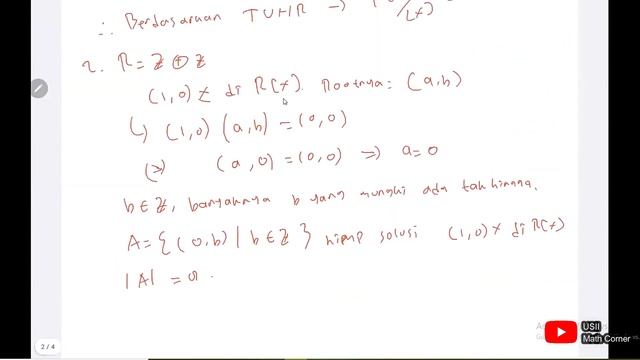 ∴ Berdasarkan TUHR →
2. R = Z ⊕ Z
(1,0) x di R[x]. Rootnya: (a,b)
↳ (1,0) (a,b) = (0,0)
(⇒) (a,0) = (0,0) ⇒ a=0
b ∈ Z, banyaknya b yang mungki ada tak hingga.
A = {(0,b) | b ∈ Z} solusi (1,0) x di R[x]
|A| =
2 / 4
USII
Math Corner